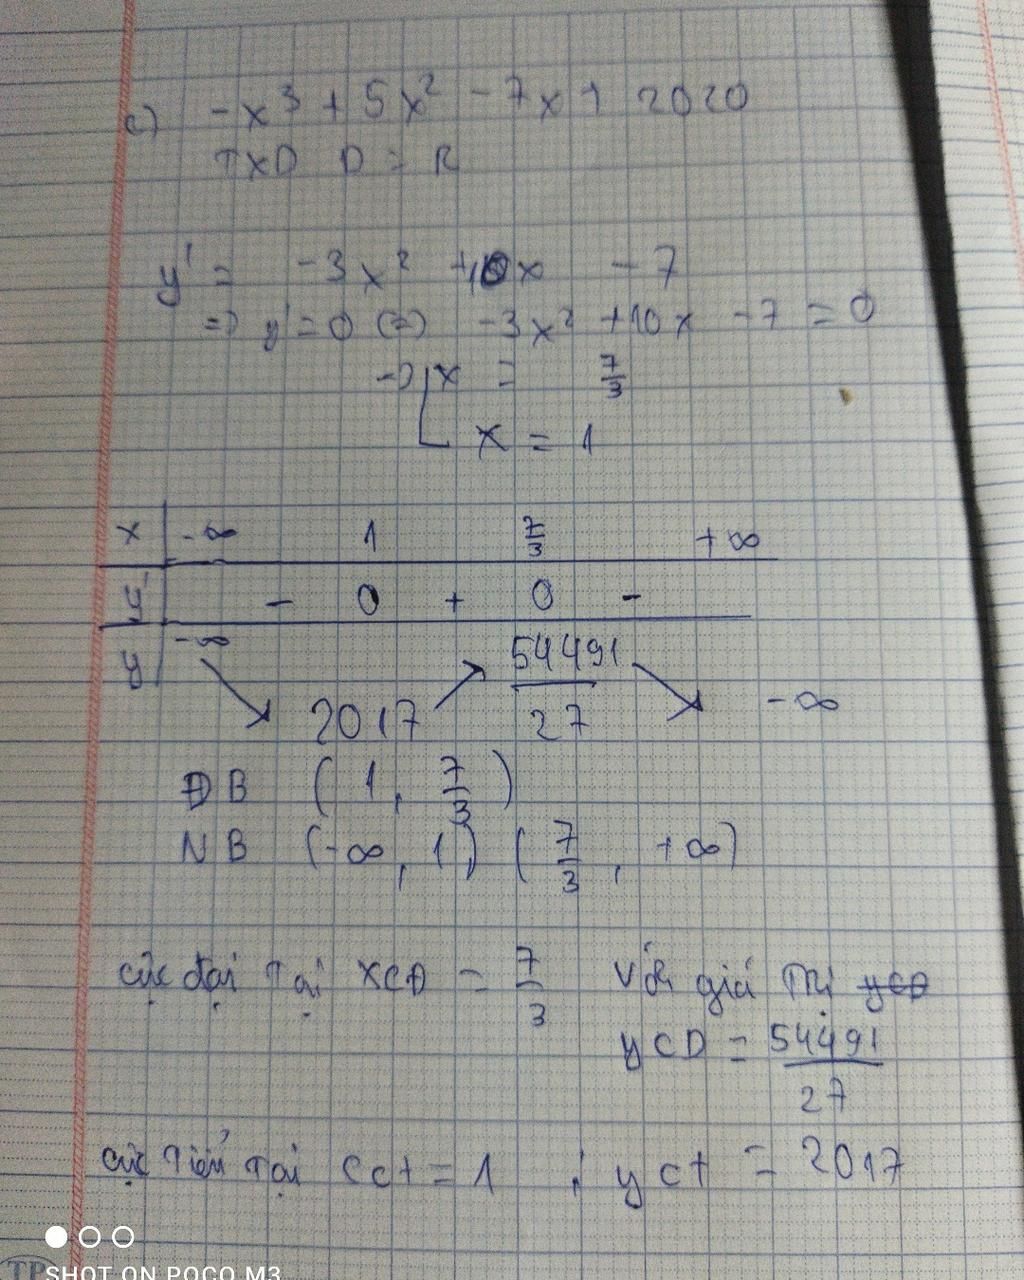 c) -x³ + 5x² - 7x + 2020
TXD D = R
y' = -3x² +10x - 7
=) y' = 0 (=) -3x² +10x - 7 = 0
-) x = 7/3
x = 1
x -∞ 1 7/3 +∞
y' - 0 + 0 -
y -∞ 2017 54491/27 -∞
ĐB (1, 7/3)
NB (-∞, 1) (7/3, +∞)
cực đại tại XCĐ = 7/3 với giá trị
yCD = 54491/27
cực tiểu tại Cct = 1 ; yct = 2017
SHOT ON POCO M3